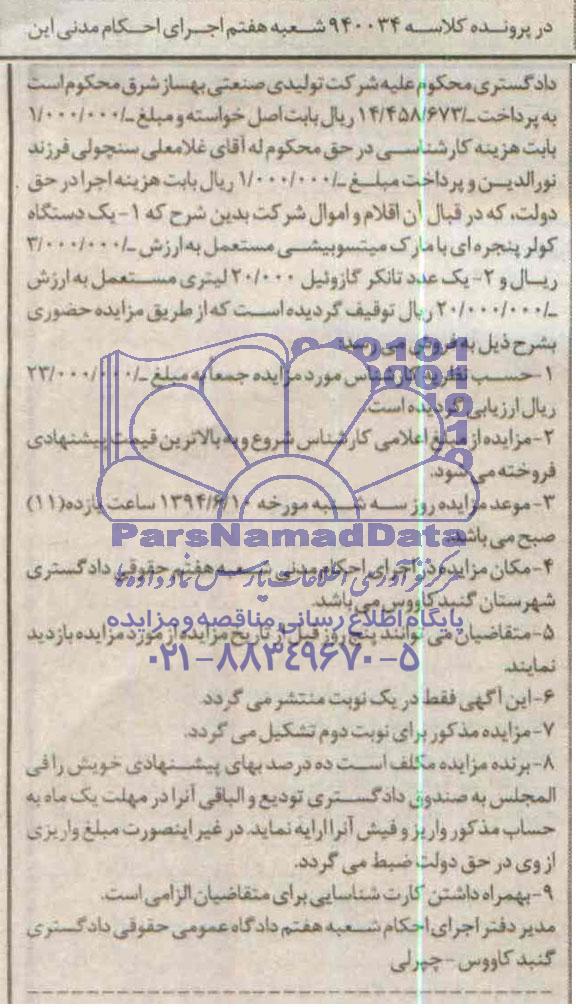 در پرونده کلاسه ۹۴۰۰۳۴ شعبه هفتم اجرای احکام مدنی این
دادگستری محکوم علیه شرکت تولیدی صنعتی بهساز شرق محکوم است
به پرداخت ـ/۱۴/۴۵۸/۶۷۳ ریال بابت اصل خواسته و مبلغ ـ/۱/۰۰۰/۰۰۰
بابت هزینه کارشناسی در حق محکوم له آقای غلامعلی سنچولی فرزند
نورالدین و پرداخت مبلغ ـ/۱/۰۰۰/۰۰۰ ریال بابت هزینه اجرا در حق
دولت، که در قبال آن اقلام و اموال شرکت بدین شرح که ۱- یک دستگاه
کولر پنجره ای با مارک میتسوبیشی مستعمل به ارزش ـ/۳/۰۰۰/۰۰۰
ریال و ۲- یک عدد تانکر گازوئیل ۲۰/۰۰۰ لیتری مستعمل به ارزش
ـ/۲۰/۰۰۰/۰۰۰ ریال توقیف گردیده است که از طریق مزایده حضوری
بشرح ذیل به فروش می رسد:
۱- حسب نظریه کارشناس مورد مزایده جمعا به مبلغ ـ/۲۳/۰۰۰/۰۰۰
ریال ارزیابی گردیده است.
۲- مزایده از مبلغ اعلامی کارشناس شروع و به بالاترین قیمت پیشنهادی
فروخته می شود.
۳- موعد مزایده روز سه شنبه مورخه ۱۳۹۴/۶/۱۰ ساعت یازده (۱۱)
صبح می باشد.
ParsNamadData
۴- مکان مزایده در اجرای احکام مدنی شعبه هفتم حقوقی دادگستری
مرکز فرآوری اطلاعات پارس نماد داده ها
شهرستان گنبدکاووس می باشد.
پایگاه اطلاع رسانی مناقصه و مزایده
۵- متقاضیان می توانند پنج روز قبل از تاریخ مزایده از مورد مزایده بازدید
نمایند.
۰۲۱-۸۸۳۴۹۶۷۰-۵
۶- این آگهی فقط در یک نوبت منتشر می گردد.
۷- مزایده مذکور برای نوبت دوم تشکیل می گردد.
۸- برنده مزایده مکلف است ده درصد بهای پیشنهادی خویش را فی
المجلس به صندوق دادگستری تودیع و الباقی آنرا در مهلت یک ماه به
حساب مذکور واریز و فیش آنرا ارایه نماید. در غیر اینصورت مبلغ واریزی
از وی در حق دولت ضبط می گردد.
۹- بهمراه داشتن کارت شناسایی برای متقاضیان الزامی است.
مدیر دفتر اجرای احکام شعبه هفتم دادگاه عمومی حقوقی دادگستری
گنبد کاووس - چپرلی